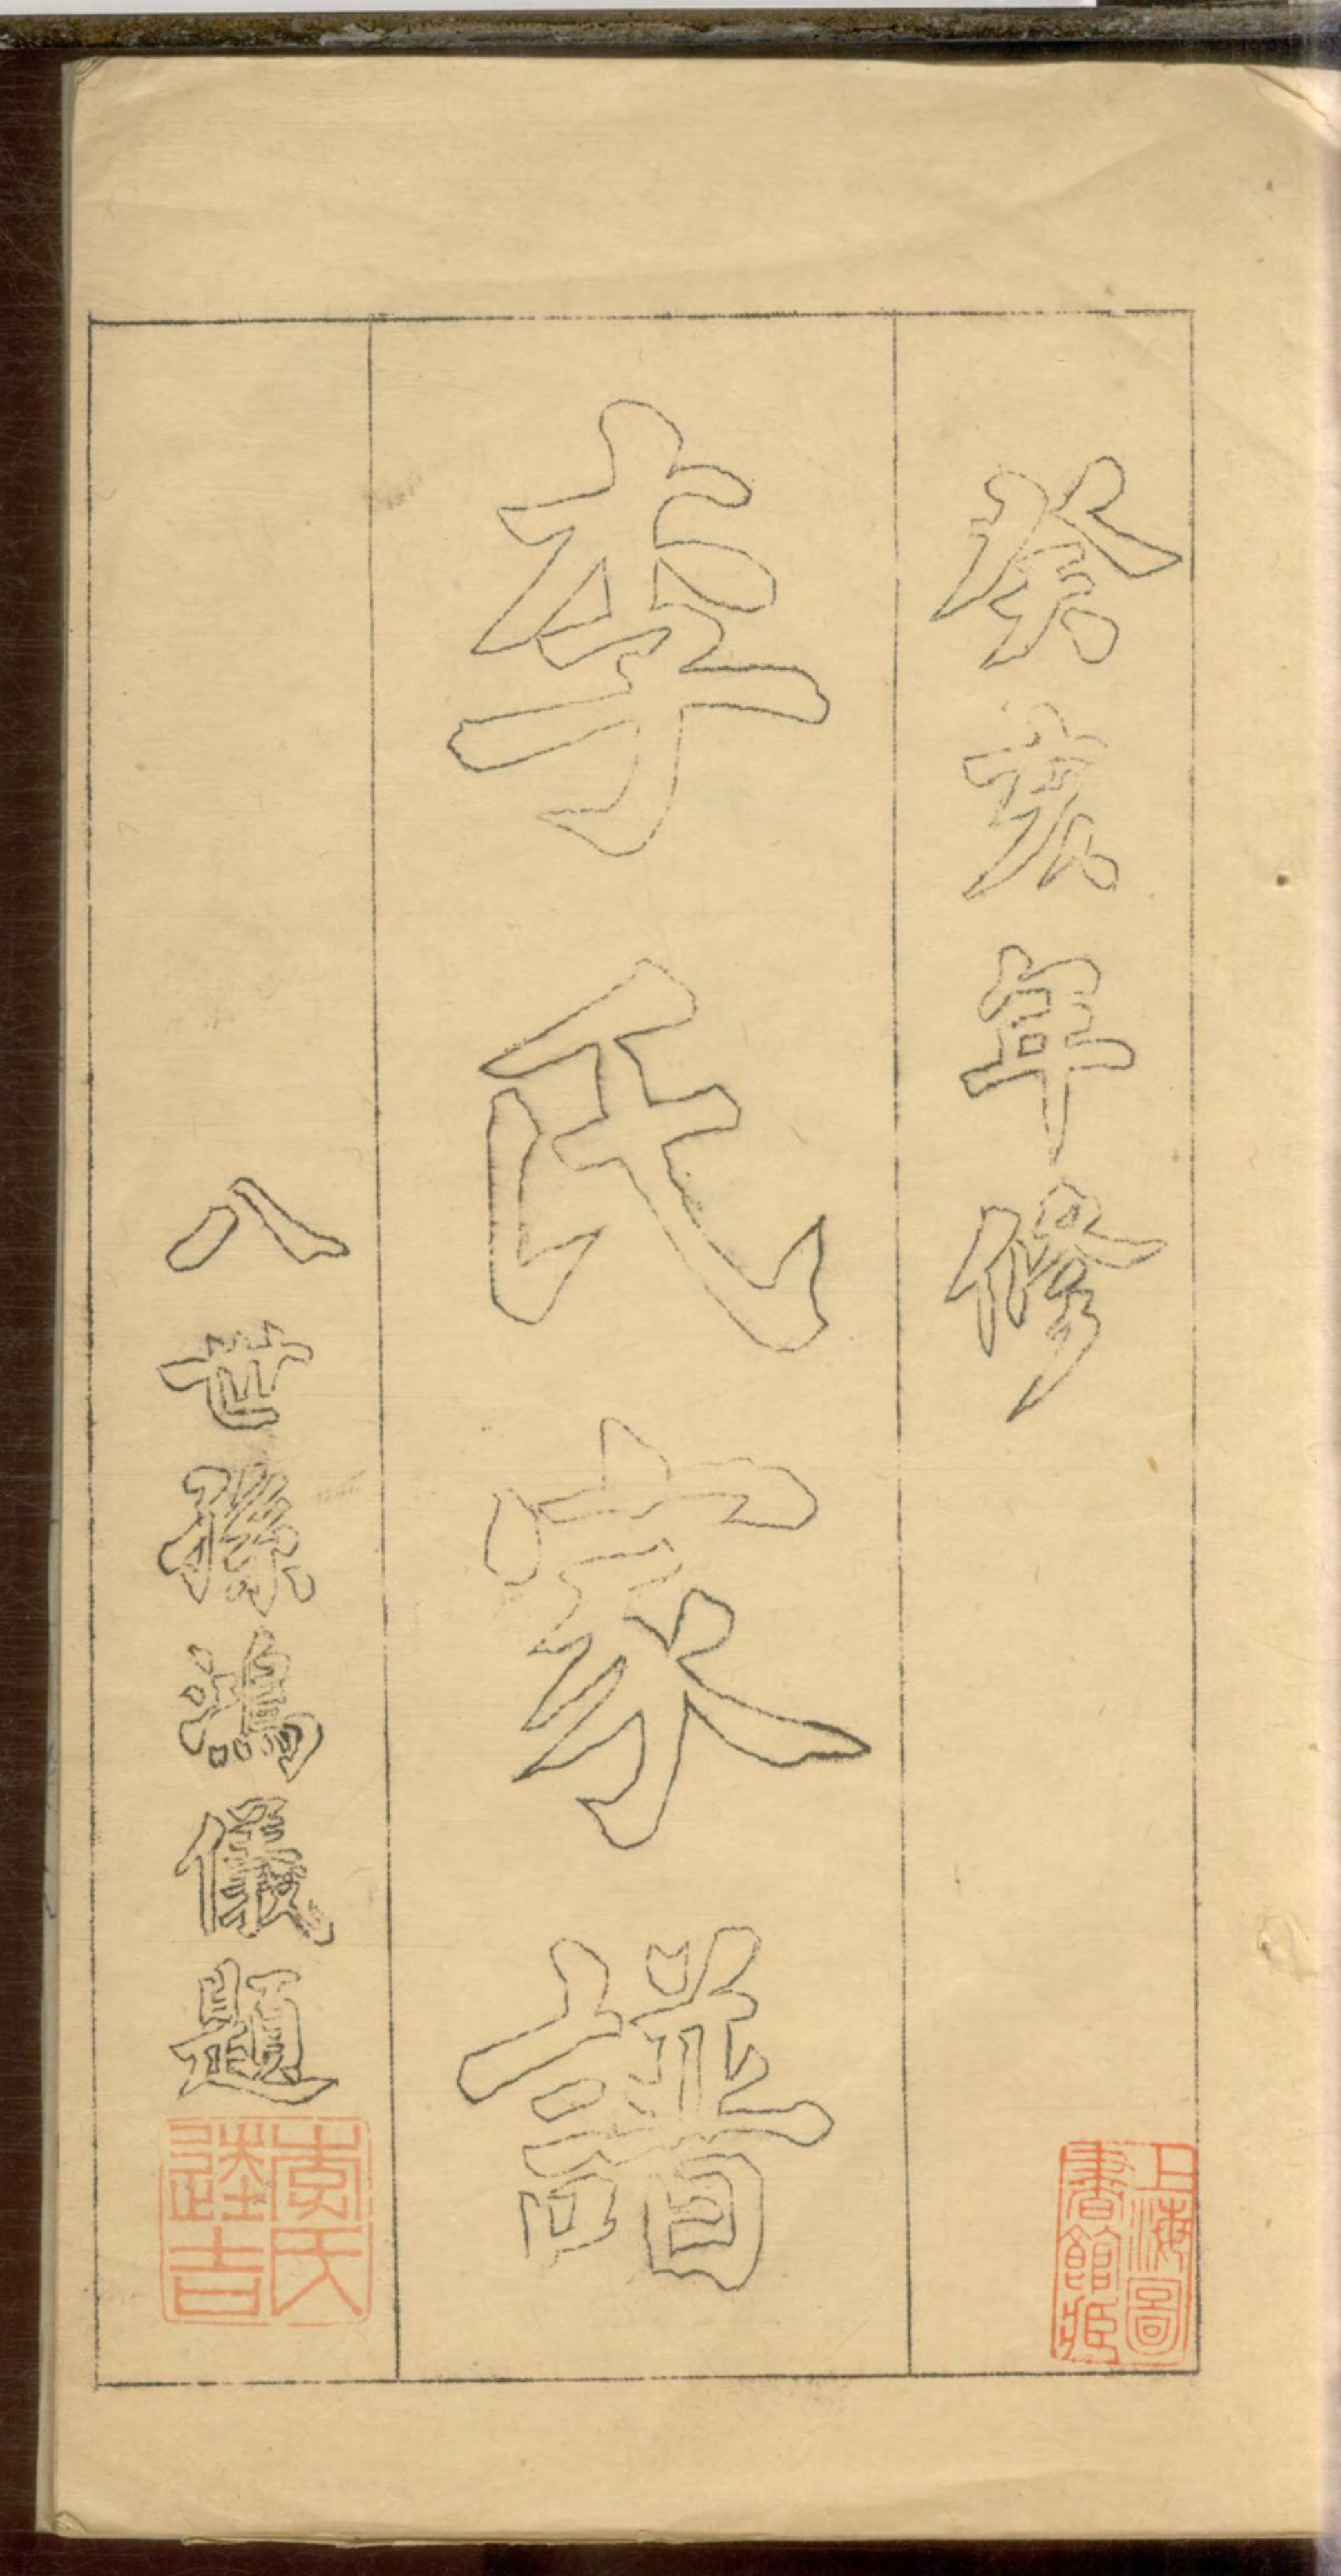 癸亥年修
李氏家譜
八世孫鴻儀題
李氏
逵吉
上海圖
書館藏